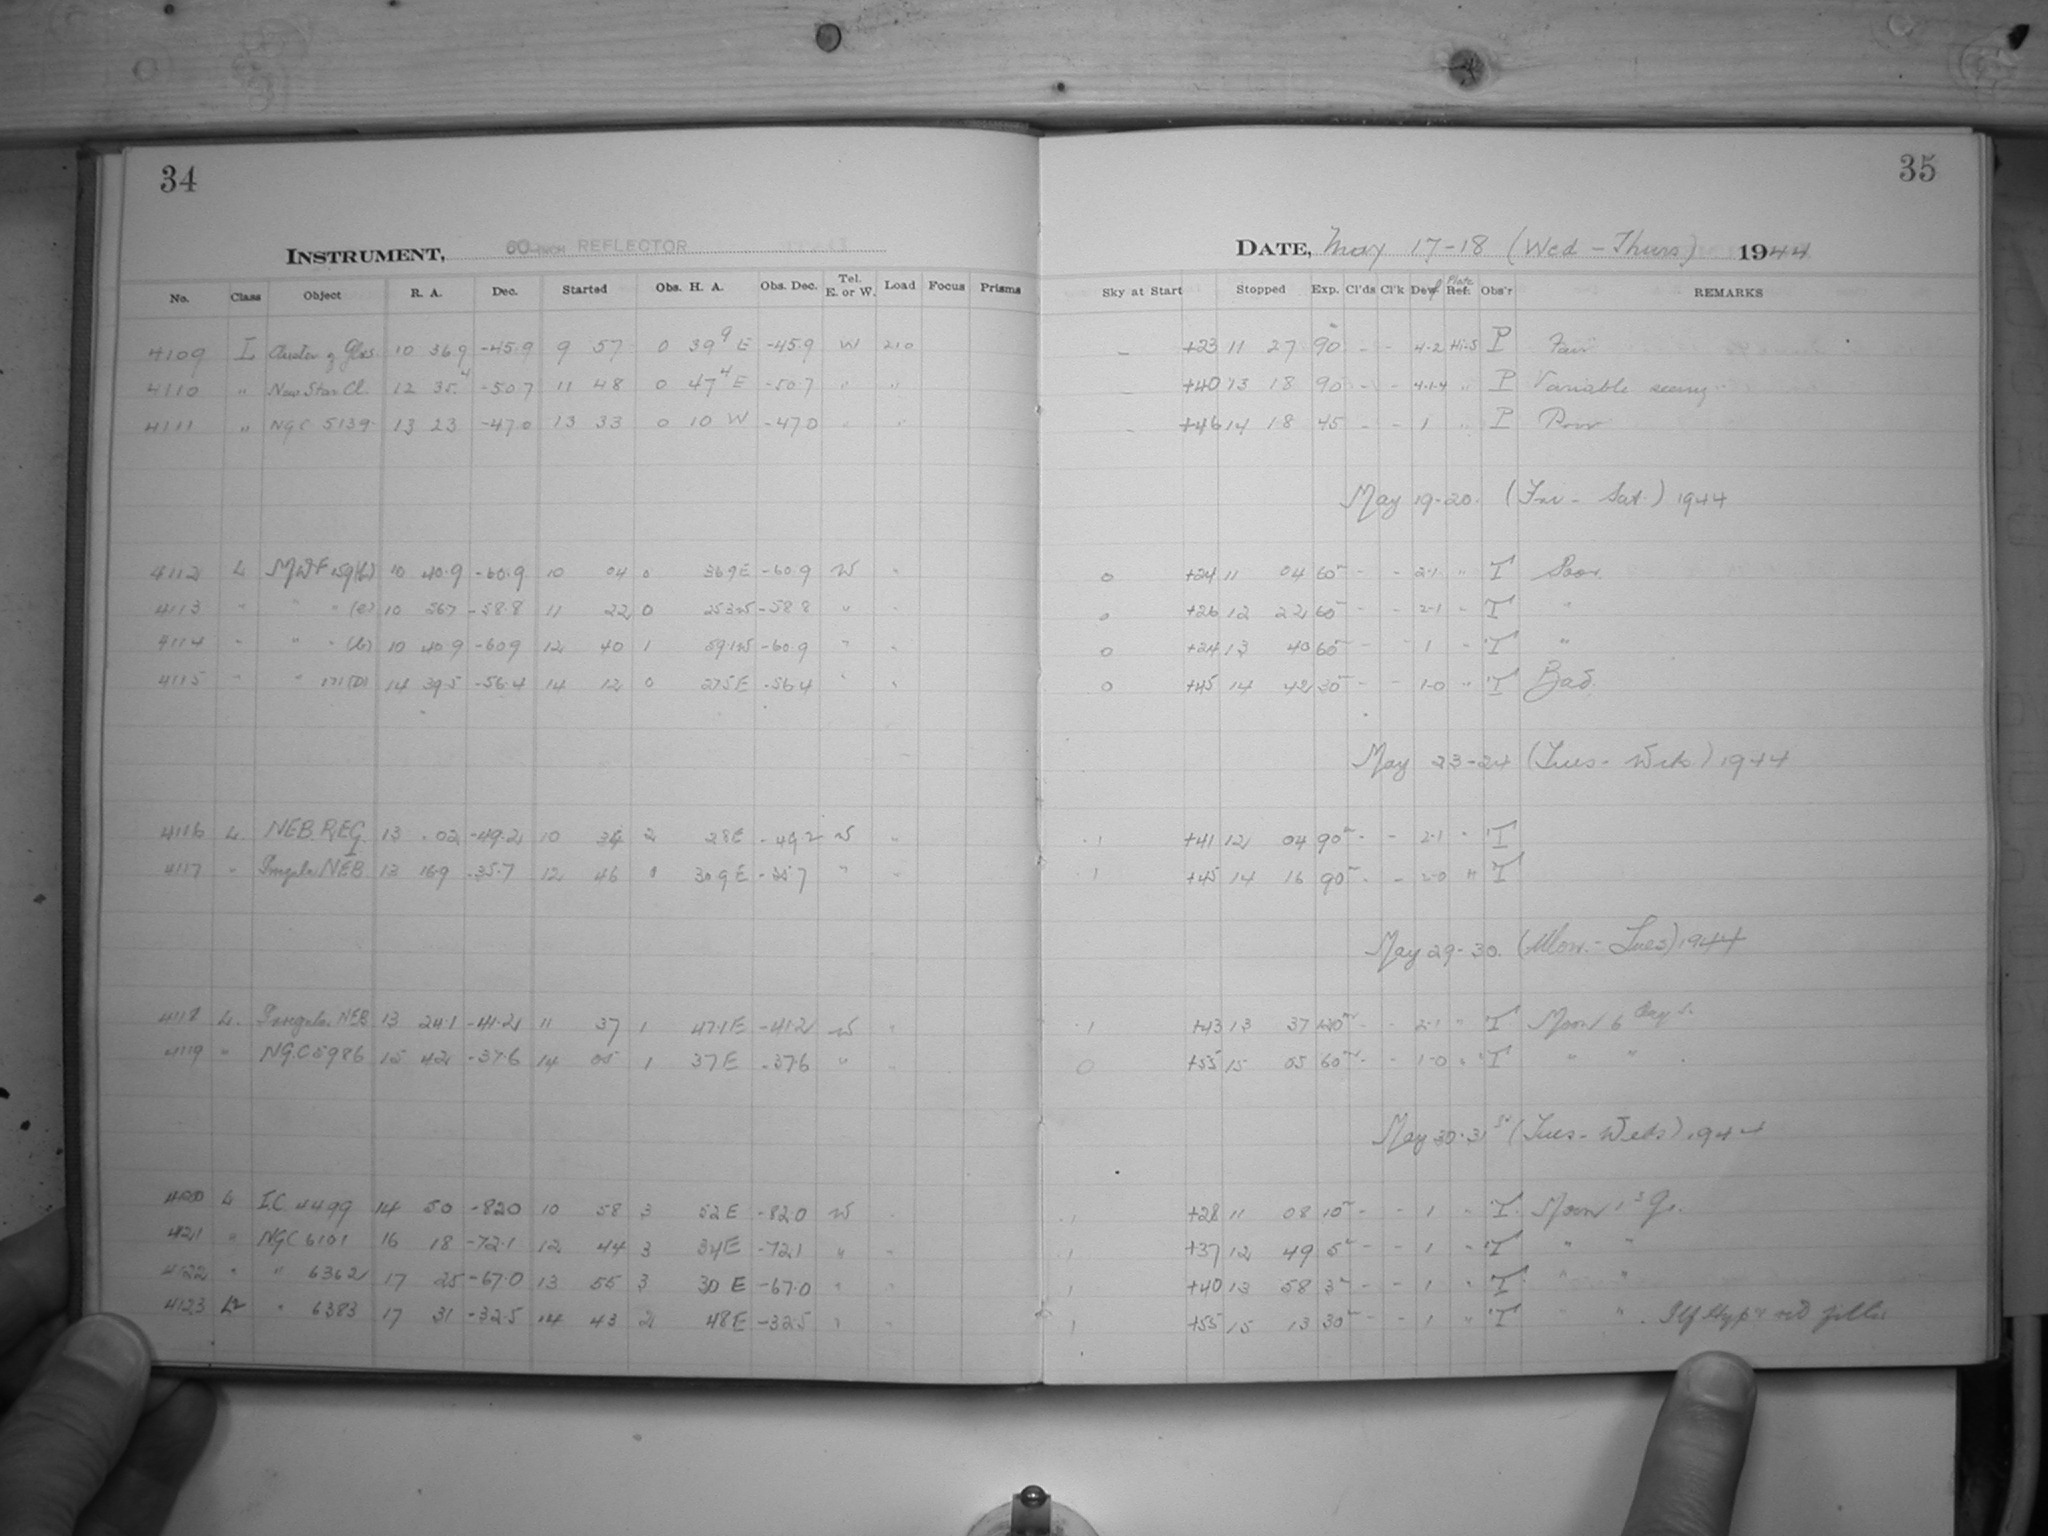 34
35
INSTRUMENT, 60-INCH REFLECTOR
DATE, May 17-18 (Wed - Thurs) 1944
No. Class Object R. A. Dec. Started Obs. H. A. Obs. Dec. Tel. E. or W. Load Focus Prisms Sky at Start Stopped Exp. Cl'ds Cl'k Dev Plate Ref. Obs'r REMARKS
4109 L Cluster of Glxs. 10 36.9 -45.9 9 57 0 39 9 E -45.9 W 210 - +23 11 27 90 - - 4-2 Hi-S P Fair
4110 " New Star Cl. 12 35.4 -50.7 11 48 0 47 4 E -50.7 " " - +40 13 18 90 - - " P Variable seeing
4111 " NGC 5139 13 23 -47.0 13 33 0 10 W -47.0 " " - +46 14 18 45 - - 1 " P Poor
May 19-20. (Fri - Sat.) 1944
4112 L MWF 159(b) 10 40.9 -60.9 10 04 0 36.9 E -60.9 W " 0 +24 11 04 60 - - 2-1 " T Poor
4113 " " " 10 56.7 -58.8 11 22 0 25.3 W -58.8 " " 0 +26 12 22 60 - - 2-1 " T "
4114 " " " (b) 10 40.9 -60.9 12 40 1 59.1 W -60.9 " " 0 +24 13 40 60 - - 1 " T "
4115 " " 171(D) 14 39.5 -56.4 14 12 0 27.5 E -56.4 " " 0 +45 14 42 30 - - 1-0 " T Bad.
May 23-24 (Tues - Weds) 1944
4116 L. NEB. REG. 13 .02 -49.2 10 34 2 28 E -49.2 W " .1 +41 12 04 90 - - 2-1 " T
4117 " Irregular NEB 13 16.9 -35.7 12 46 0 30.9 E -35.7 " " .1 +45 14 16 90 - - 2-0 " T
May 29-30. (Mon. - Tues) 1944
4118 L. Irregular NEB 13 24.1 -41.2 11 37 1 47.1 E -41.2 W " .1 +43 13 37 120 - - 2-1 " T Moon 6 days
4119 " NGC 5986 15 42 -37.6 14 05 1 37 E -37.6 " " 0 +55 15 05 60 - - 1-0 " T " "
May 30-31 (Tues - Weds) 1944
4120 L I.C. 4499 14 50 -82.0 10 58 3 52 E -82.0 W " .1 +28 11 08 10 - - 1 " T Moon 1st Qr.
4121 " NGC 6101 16 18 -72.1 12 44 3 34 E -72.1 " " .1 +37 12 49 5 - - 1 " T " "
4122 " " 6362 17 25 -67.0 13 55 3 30 E -67.0 " " .1 +40 13 58 3 - - 1 " T " "
4123 " 6383 17 31 -32.5 14 43 2 48 E -32.5 " " .1 +55 15 13 30 - - 1 " T " " Ilf Hyp red filter